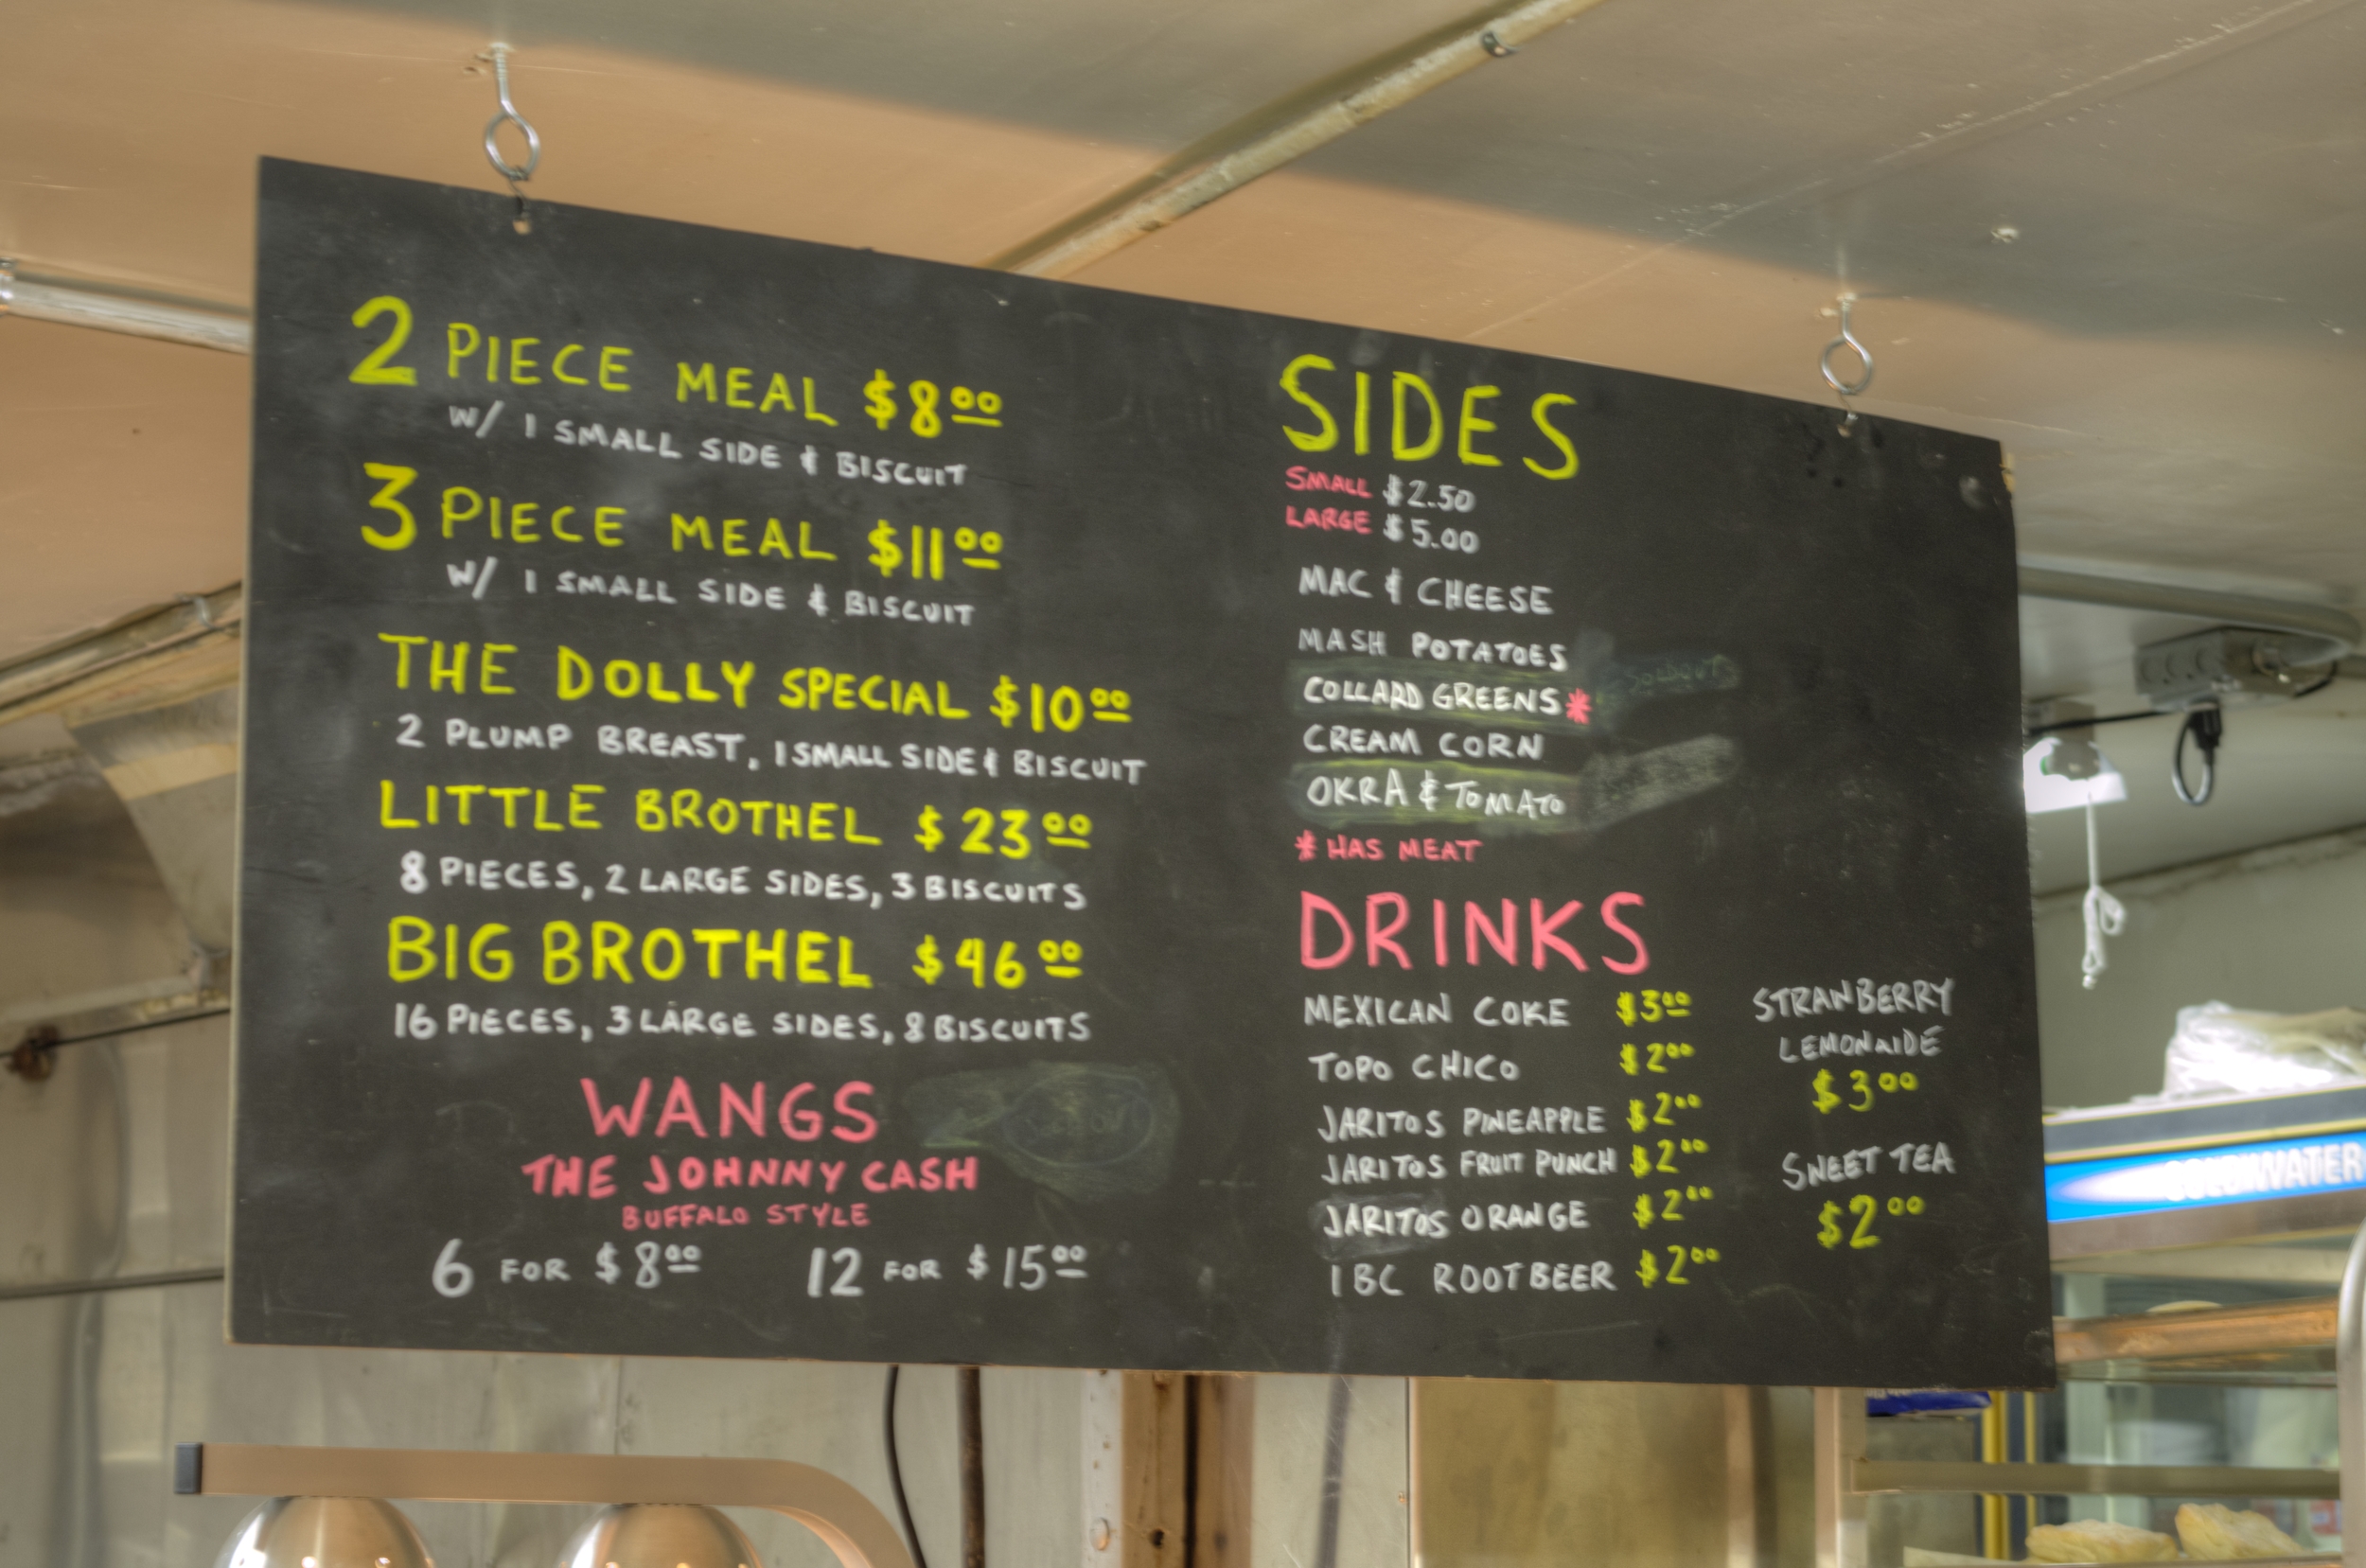 2 PIECE MEAL $8.00
W/ 1 SMALL SIDE & BISCUIT
3 PIECE MEAL $11.00
W/ 1 SMALL SIDE & BISCUIT
THE DOLLY SPECIAL $10.00
2 PLUMP BREAST, 1 SMALL SIDE & BISCUIT
LITTLE BROTHEL $23.00
8 PIECES, 2 LARGE SIDES, 3 BISCUITS
BIG BROTHEL $46.00
16 PIECES, 3 LARGE SIDES, 8 BISCUITS
WANGS
THE JOHNNY CASH
BUFFALO STYLE
6 FOR $8.00 12 FOR $15.00
SIDES
SMALL $2.50
LARGE $5.00
MAC & CHEESE
MASH POTATOES
COLLARD GREENS*
CREAM CORN
OKRA & TOMATO
* HAS MEAT
DRINKS
MEXICAN COKE $3.00
TOPO CHICO $2.00
JARITOS PINEAPPLE $2.00
JARITOS FRUIT PUNCH $2.00
JARITOS ORANGE $2.00
IBC ROOT BEER $2.00
STRAWBERRY
LEMONAIDE
$3.00
SWEET TEA
$2.00
COLD WATER